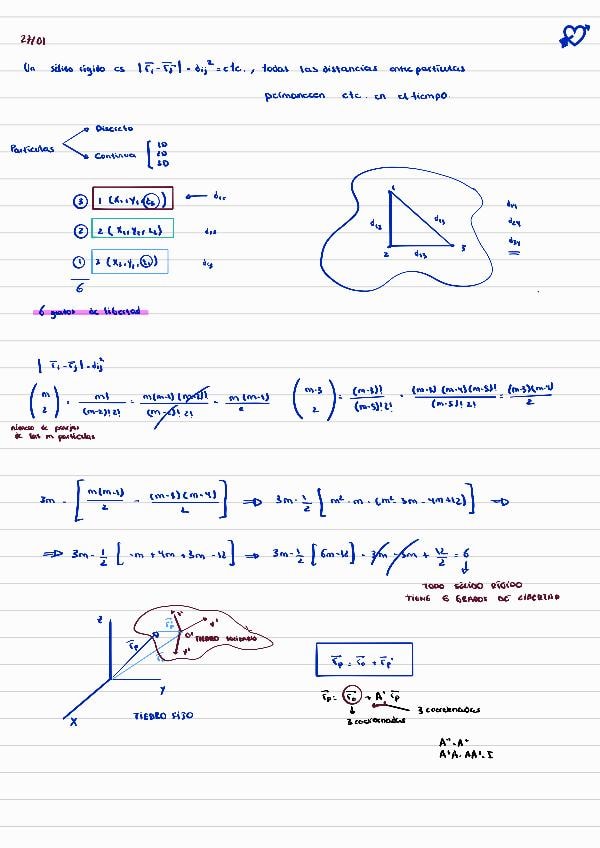 27/01
Un sólido rígido es |r̄i - r̄j| = dij² = ctc., todas las distancias entre partículas
permanecen ctc. en el tiempo.
Partículas
Discreto
Continua [ 1D
2D
3D
③ 1 (x₁, y₁, z₁)
② 2 (x₂, y₂, z₂)
① 3 (x₃, y₃, z₃)
6
6 grados de libertad
1
d12
d13
2
d23
3
| r̄i - r̄j | = dij²
(m 2) = m! / (m-2)! 2! = m(m-1)(m-2)! / (m-2)! 2! = m(m-1) / 2
(m-3 2) = (m-3)! / (m-5)! 2! = (m-3)(m-4)(m-5)! / (m-5)! 2! = (m-3)(m-4) / 2
número de parejas
de las m partículas
3m - [ m(m-1) / 2 - (m-3)(m-4) / 2 ] ⇒ 3m - 1/2 [ m² - m - (m² - 3m - 4m + 12) ] ⇒
⇒ 3m - 1/2 [ -m + 4m + 3m - 12 ] ⇒ 3m - 1/2 [ 6m - 12 ] = 3m - 3m + 12/2 = 6
TODO SÓLIDO RÍGIDO
TIENE 6 GRADOS DE LIBERTAD
Z
r̄p
O'
y'
TIEDRO SOLIDARIO
Y
X
TIEDRO FIJO
r̄p = r̄o + r̄p'
r̄p = r̄o + A r̄p
3 coordenadas
3 coordenadas
A'A = AA' = I